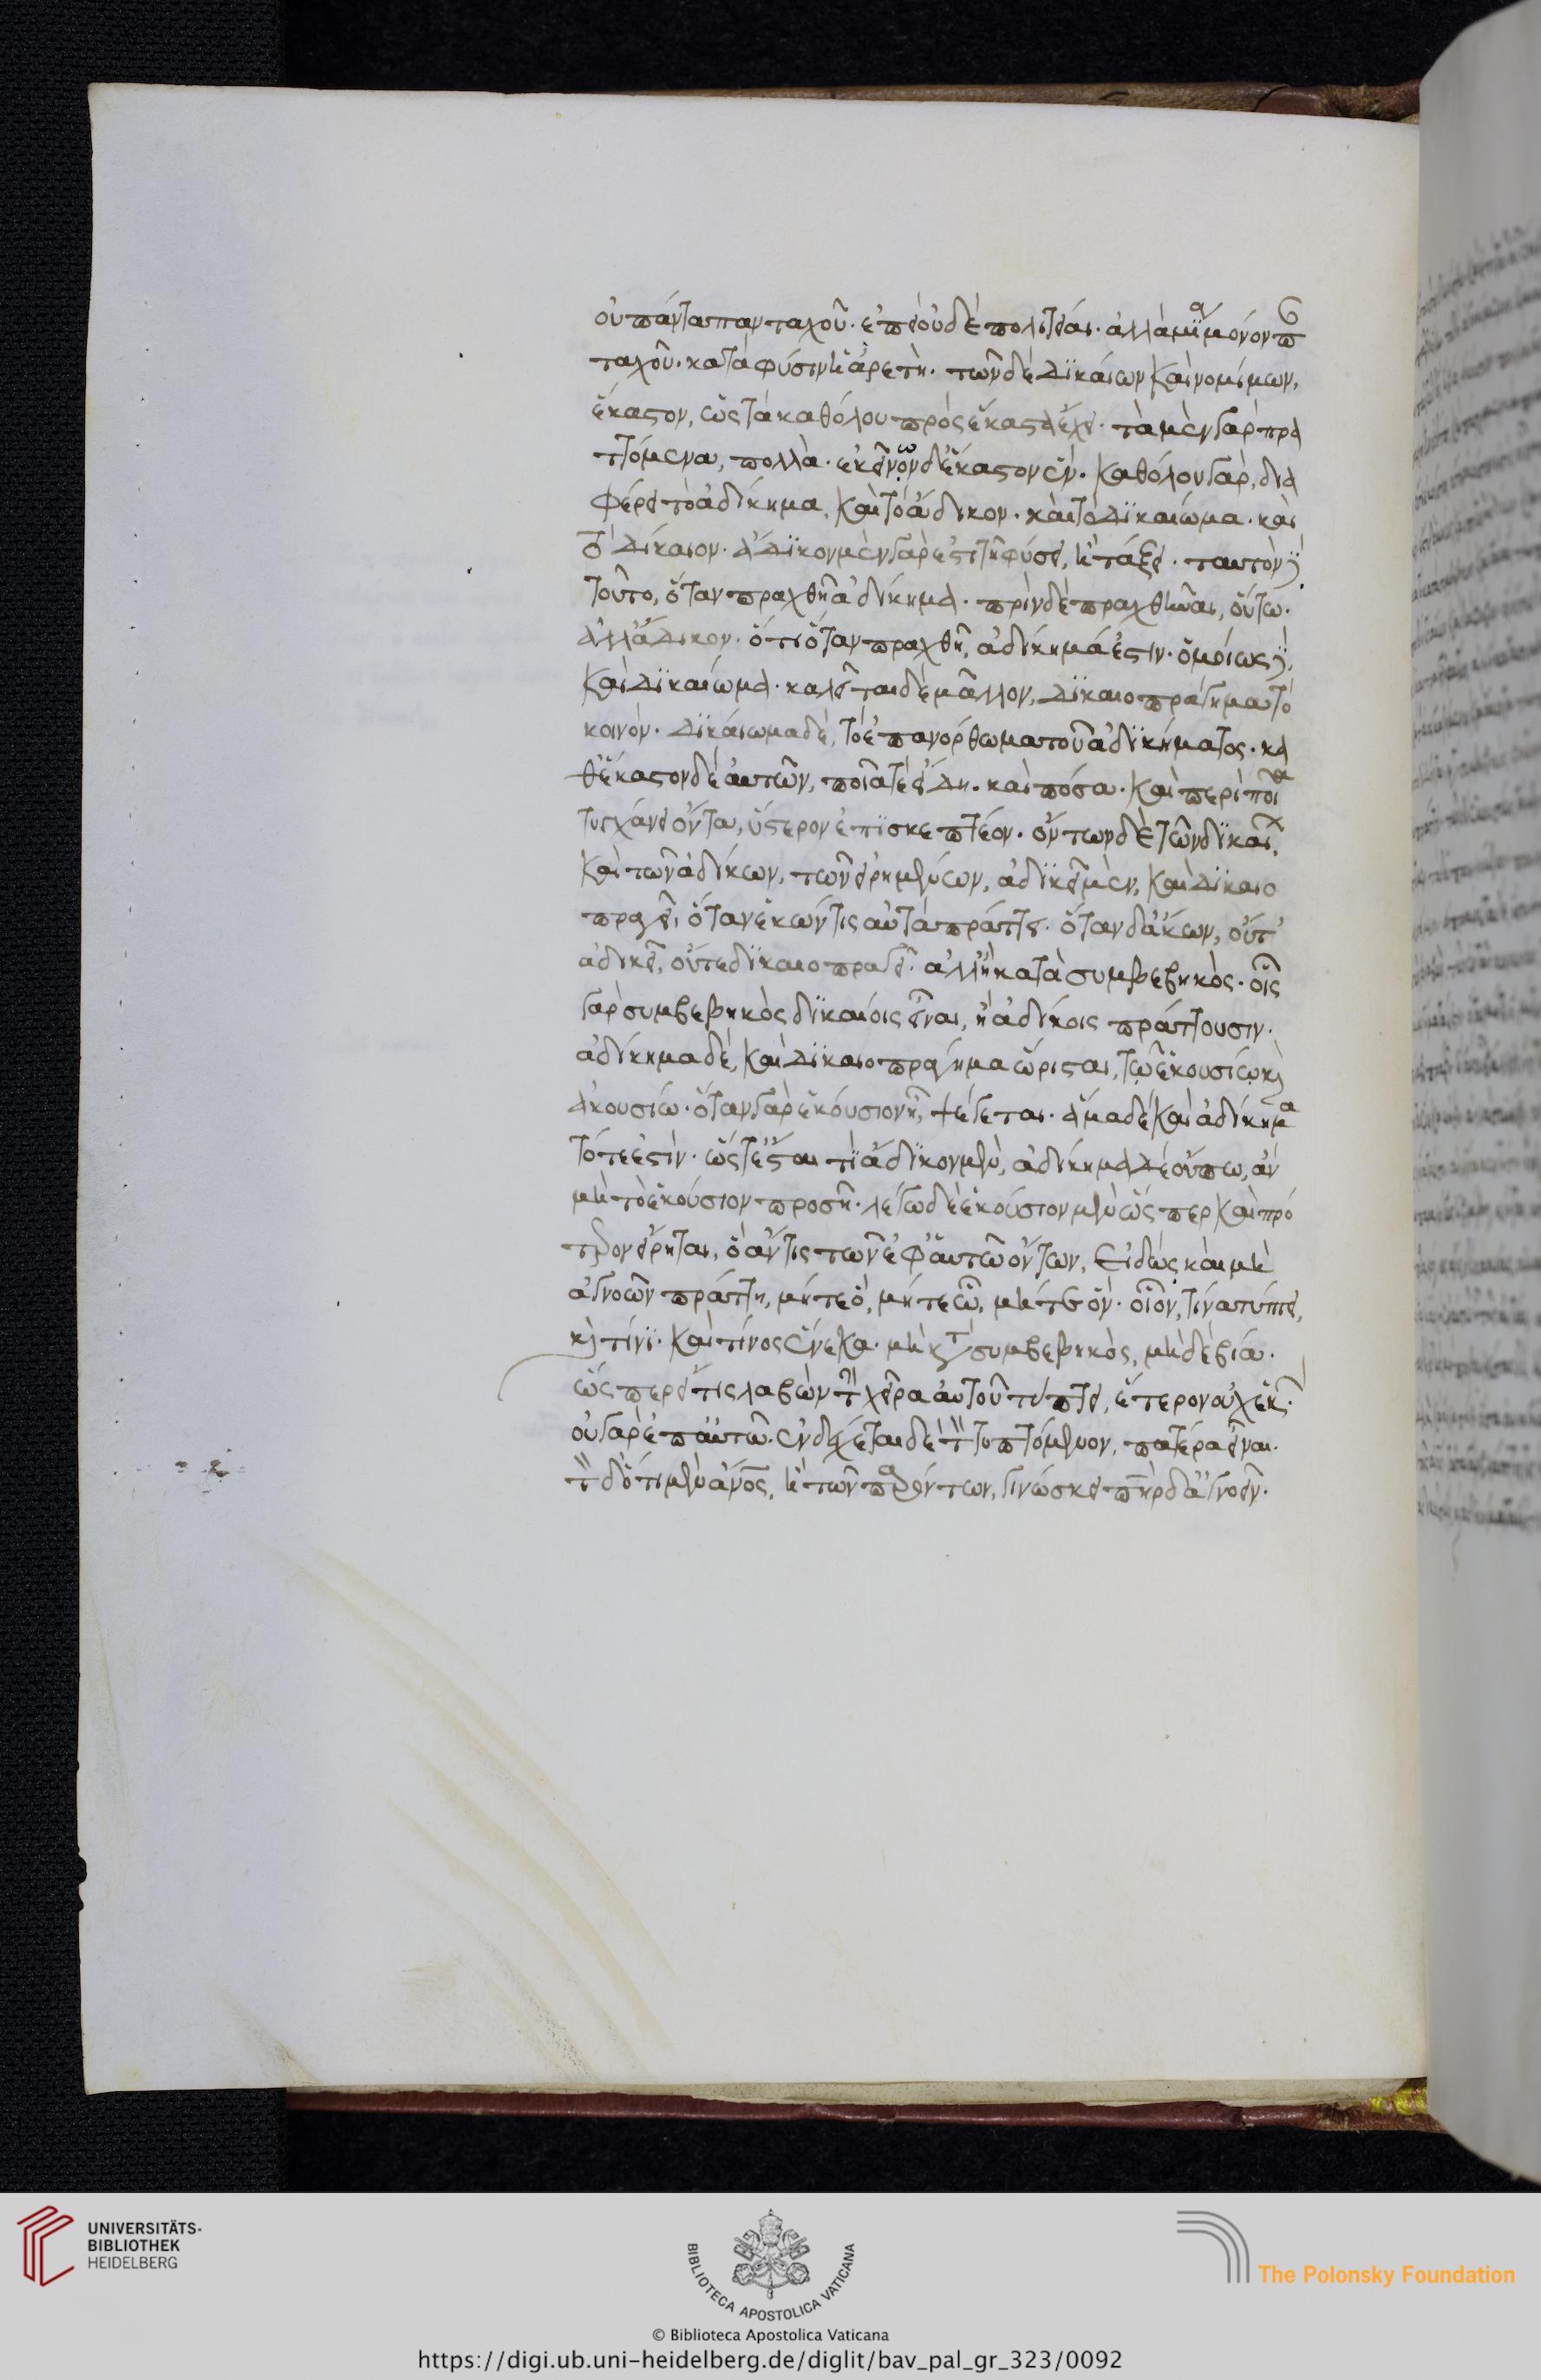 οὐ πάντα πανταχοῦ. ἐπεὶ οὐδὲ πολιτεῖαι. ἀλλὰ μία μόνον παν
ταχοῦ. κατὰ φύσιν ἡ ἀρετὴ. τῶν δὲ δϊκαίων καὶ νομίμων,
ἕκαστον, ὡς τὰ καθόλου πρὸς ἕκαστα ἔχει. τὰ μὲν γὰρ πρα
ττόμενα, πολλὰ. ἐκείνων δ' ἕκαστον ἕν. καθόλου γὰρ, δια
φέρει τὸ ἀδίκημα, καὶ τὸ ἄδικον. καὶ τὸ δϊκαίωμα. καὶ
τὸ δίκαιον. ἄδϊκον μὲν γὰρ ἐστὶ τῆ φύσει, ἢ τάξει. ταυτὸν δὲ
τοῦτο, ὅταν πραχθῆ ἀδίκημα. πρὶν δὲ πραχθῆναι, οὔπω.
ἀλλ' ἄδικον. ὅτι ὅταν πραχθῆ, ἀδίκημά ἐστιν. ὁμοίως δὲ
καὶ δϊκαίωμα. καλεῖται δὲ μᾶλλον, δϊκαιοπράγημα τὸ
κοινὸν. δϊκαίωμα δὲ, τὸ ἐπανόρθωμα τοῦ ἀδϊκήματος. κα
θ' ἕκαστον δὲ αὐτῶν, ποῖα τὲ εἴδη. καὶ πόσα. καὶ περὶ ποῖα
τυγχάνει ὄντα, ὕστερον ἐπϊσκεπτέον. ὄντων δὲ τῶν δϊκαίων
καὶ τῶν ἀδίκων, τῶν εἰρημένων, ἀδϊκεῖ μὲν, καὶ δϊκαιο
πραγεῖ, ὅταν ἑκών τις αὐτὰ πράττει. ὅταν δ' ἄκων, οὔτ'
ἀδικεῖ, οὔτε δϊκαιοπραγεῖ. ἀλλ' ἢ κατὰ συμβεβηκὸς. οἷς
γὰρ συμβεβηκὸς δϊκαίοις εἶναι, ἢ ἀδίκοις πράττουσιν.
ἀδίκημα δὲ, καὶ δϊκαιοπράγημα ὥρισται, τῷ ἑκουσίῳ καὶ
ἀκουσίω. ὅταν γὰρ ἑκούσιον ἦ, ψέγεται. ἅμα δὲ καὶ ἀδίκημα
τότε ἐστὶν. ὥστ' ἔσται τϊ ἄδϊκον μὲν, ἀδίκημα δὲ οὔπω, ἂν
μὴ τὸ ἑκούσιον προσῆ. λέγω δὲ ἑκούσιον μὲν ὥσπερ καὶ πρό
τερον εἴρηται, ὃ ἄν τις τῶν ἐφ' αὑτῶ ὄντων, εἰδὼς καὶ μὴ
ἀγνοῶν πράττη, μήτε ὃ, μήτε ὧ, μήτε οὗ. οἷον, τίνα τύπτει,
καὶ τίνϊ. καὶ τίνος ἕνεκα. μὴ κατὰ συμβεβηκὸς, μὴ δὲ βία.
ὥσπερ εἴ τις λαβὼν τὴν χεῖρα αὐτοῦ τύπτει, ἕτερον οὐχ ἑκών.
οὐ γὰρ ἐπ' αὐτῶ. ἐνδέχεται δὲ τὸν τυπτόμενον, πατέρα εἶναι.
τὸν δ' ὅτι μὲν ἄνος, ἢ τῶν παρόντων, γινώσκει πηρ δ' ἀγνοεῖν.
UNIVERSITÄTS-
BIBLIOTHEK
HEIDELBERG
BIBLIOTECA APOSTOLICA VATICANA
The Polonsky Foundation
© Biblioteca Apostolica Vaticana
https://digi.ub.uni-heidelberg.de/diglit/bav_pal_gr_323/0092